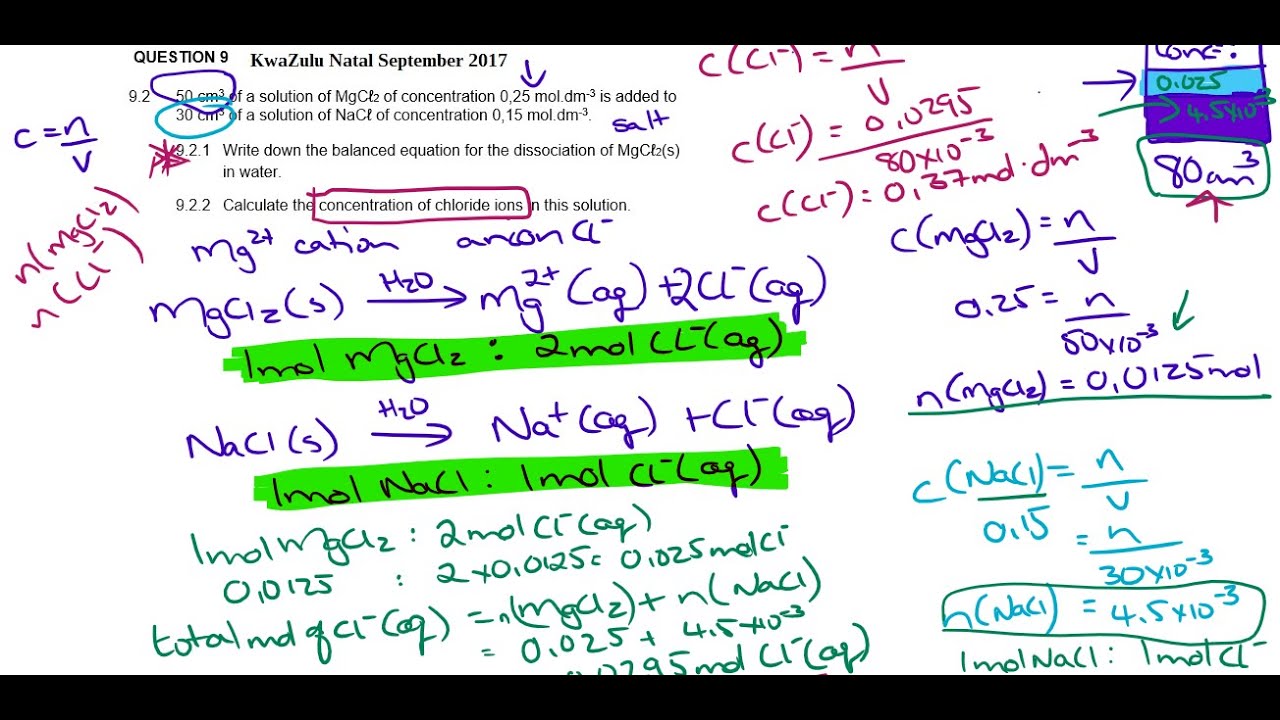 QUESTION 9 KwaZulu Natal September 2017
9.2 50 cm³ of a solution of MgCℓ₂ of concentration 0,25 mol.dm⁻³ is added to
30 cm³ of a solution of NaCℓ of concentration 0,15 mol.dm⁻³.
salt
9.2.1 Write down the balanced equation for the dissociation of MgCℓ₂(s)
in water.
9.2.2 Calculate the concentration of chloride ions in this solution.
c = n/v
n(MgCl₂)
n(Cl⁻)
Mg²⁺ cation anion Cl⁻
MgCl₂(s) H₂O → Mg²⁺(aq) + 2Cl⁻(aq)
1mol MgCl₂ : 2mol Cl⁻(aq)
NaCl(s) H₂O → Na⁺(aq) + Cl⁻(aq)
1mol NaCl : 1mol Cl⁻(aq)
1mol MgCl₂ : 2mol Cl⁻(aq)
0,0125 : 2×0,0125 = 0,025mol Cl⁻
total mol of Cl⁻(aq) = n(MgCl₂) + n(NaCl)
= 0,025 + 4.5×10⁻³
0,0295mol Cl⁻(aq)
c(Cl⁻) = n/v
c(Cl⁻) = 0,0295/80×10⁻³
c(Cl⁻) = 0,37mol·dm⁻³
conc?
0.025
4.5×10⁻³
80cm³
c(MgCl₂) = n/v
0.25 = n/50×10⁻³
n(MgCl₂) = 0,0125mol
c(NaCl) = n/v
0.15 = n/30×10⁻³
n(NaCl) = 4.5×10⁻³
1mol NaCl : 1mol Cl⁻